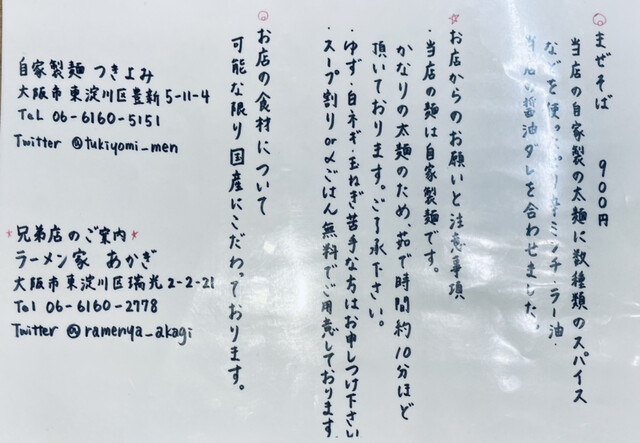 まぜそば 900円
当店の自家製の太麺に数種類のスパイス
などを使っ 辛ミンチ・ラー油・
当店の醤油ダレを合わせました。
お店からのお願いと注意事項
・当店の麺は自家製麺です。
かなりの太麺のため、茹で時間約10分ほど
頂いております。ご了承下さい。
・ゆず・白ネギ・玉ねぎ苦手な方はお申しつけ下さい
・スープ割りor〆ごはん無料でご用意しております
お店の食材について
可能な限り国産にこだわっております。
自家製麺 つきよみ
大阪市東淀川区豊新5-11-4
TeL 06-6160-5151
Twitter @tukiyomi_men
*兄弟店のご案内*
ラーメン家 あかぎ
大阪市東淀川区瑞光2-2-21
Tel 06-6160-2778
Twitter @ramenya_akagi